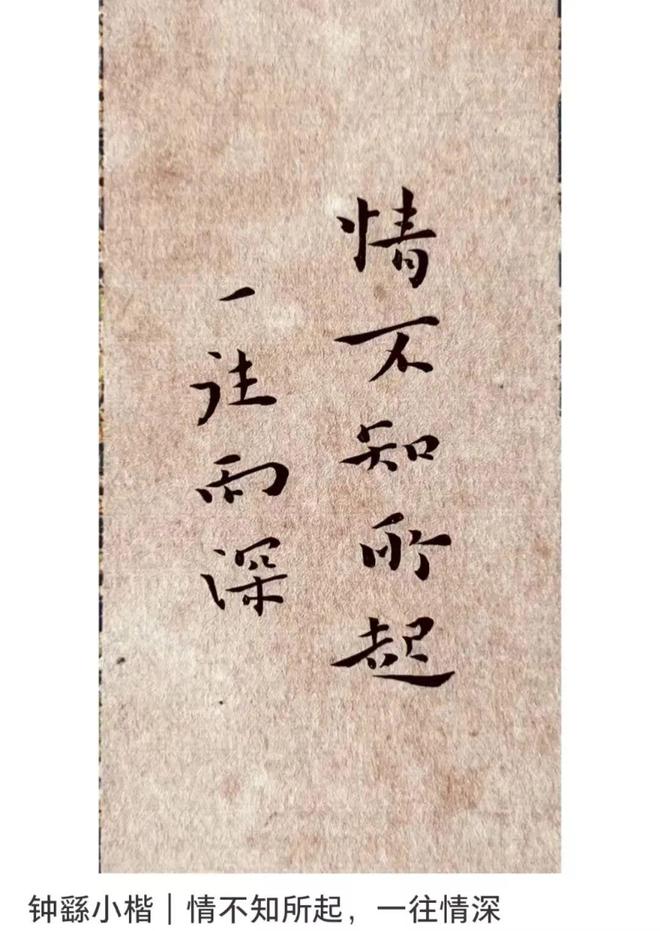 情不知所起
一往而深
钟繇小楷｜情不知所起，一往情深